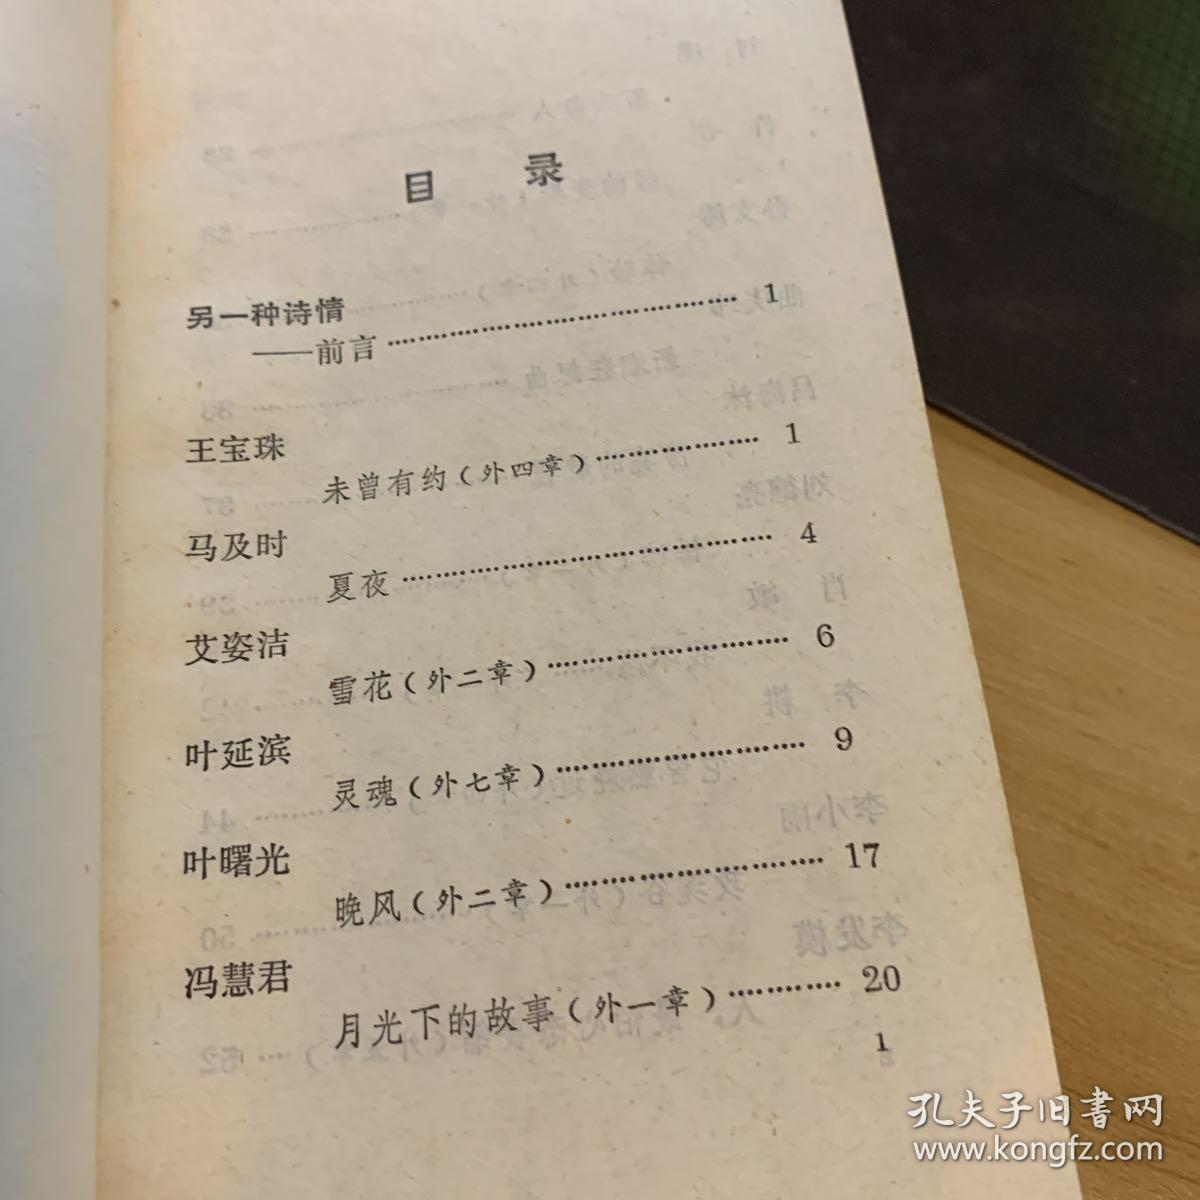 目 录
另一种诗情
——前言…………………………………… 1
王宝珠
未曾有约(外四章)………………… 1
马及时
夏夜…………………………………… 4
艾姿洁
雪花(外二章)……………………… 6
叶延滨
灵魂(外七章)……………………… 9
叶曙光
晚风(外二章)……………………… 17
冯慧君
月光下的故事(外一章)………… 20
1
孔夫子旧书网
www.kongfz.com